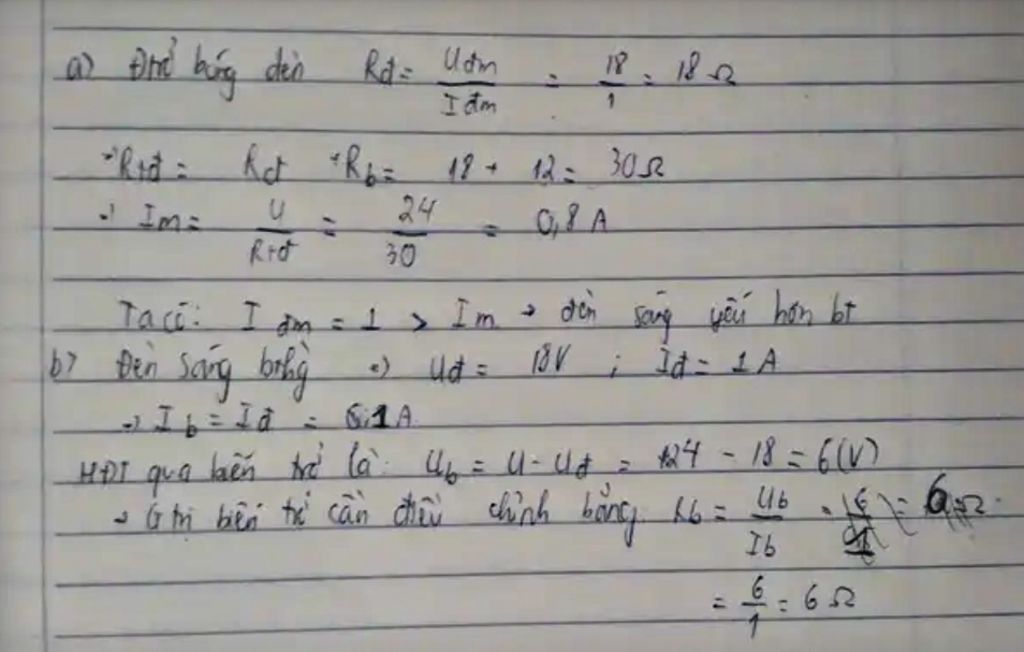 a) Đtrở bóng đèn Rđ = Uđm / Iđm = 18 / 1 = 18 Ω
→ Rtđ = Rđ + Rb = 18 + 12 = 30 Ω
→ Im = U / Rtđ = 24 / 30 = 0,8 A
Ta có: I đm = 1 > Im → đèn sáng yếu hơn bt
b) Đèn sáng bthg → Uđ = 18V ; Iđ = 1 A
→ Ib = Iđ = 1A
HĐT qua biến trở là: Ub = U - Uđ = 24 - 18 = 6(V)
→ G trị biến trở cần điều chỉnh bằng Rb = Ub / Ib
= 6 / 1 = 6 Ω